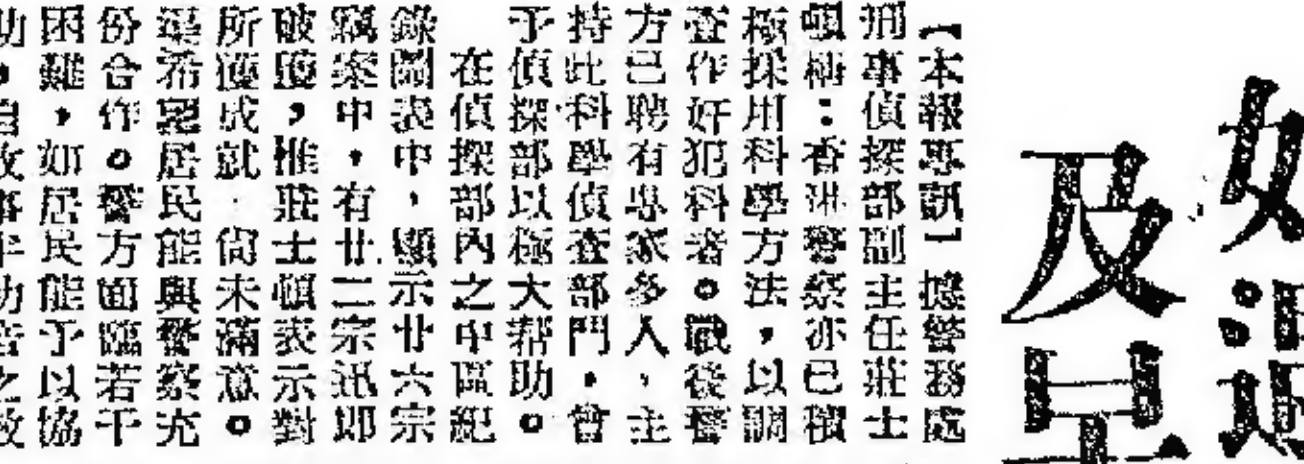 如遇
及早
【本報專訊】據警務處
刑事偵探部副主任莊士
頓稱：香港警察亦已積
極採用科學方法，以調
查作奸犯科者。戰後警
方已聘有專家多人，主
持此科學偵查部門，曾
予偵探部以極大幇助。
在偵探部內之中區紀
錄圖表中，顯示廿六宗
竊案中，有廿二宗迅即
破獲，惟莊士頓表示對
所獲成就，尙未滿意。
渠希冀居民能與警察充
份合作。警方面臨若干
困難，如居民能予以協
助，自收事半功倍之效